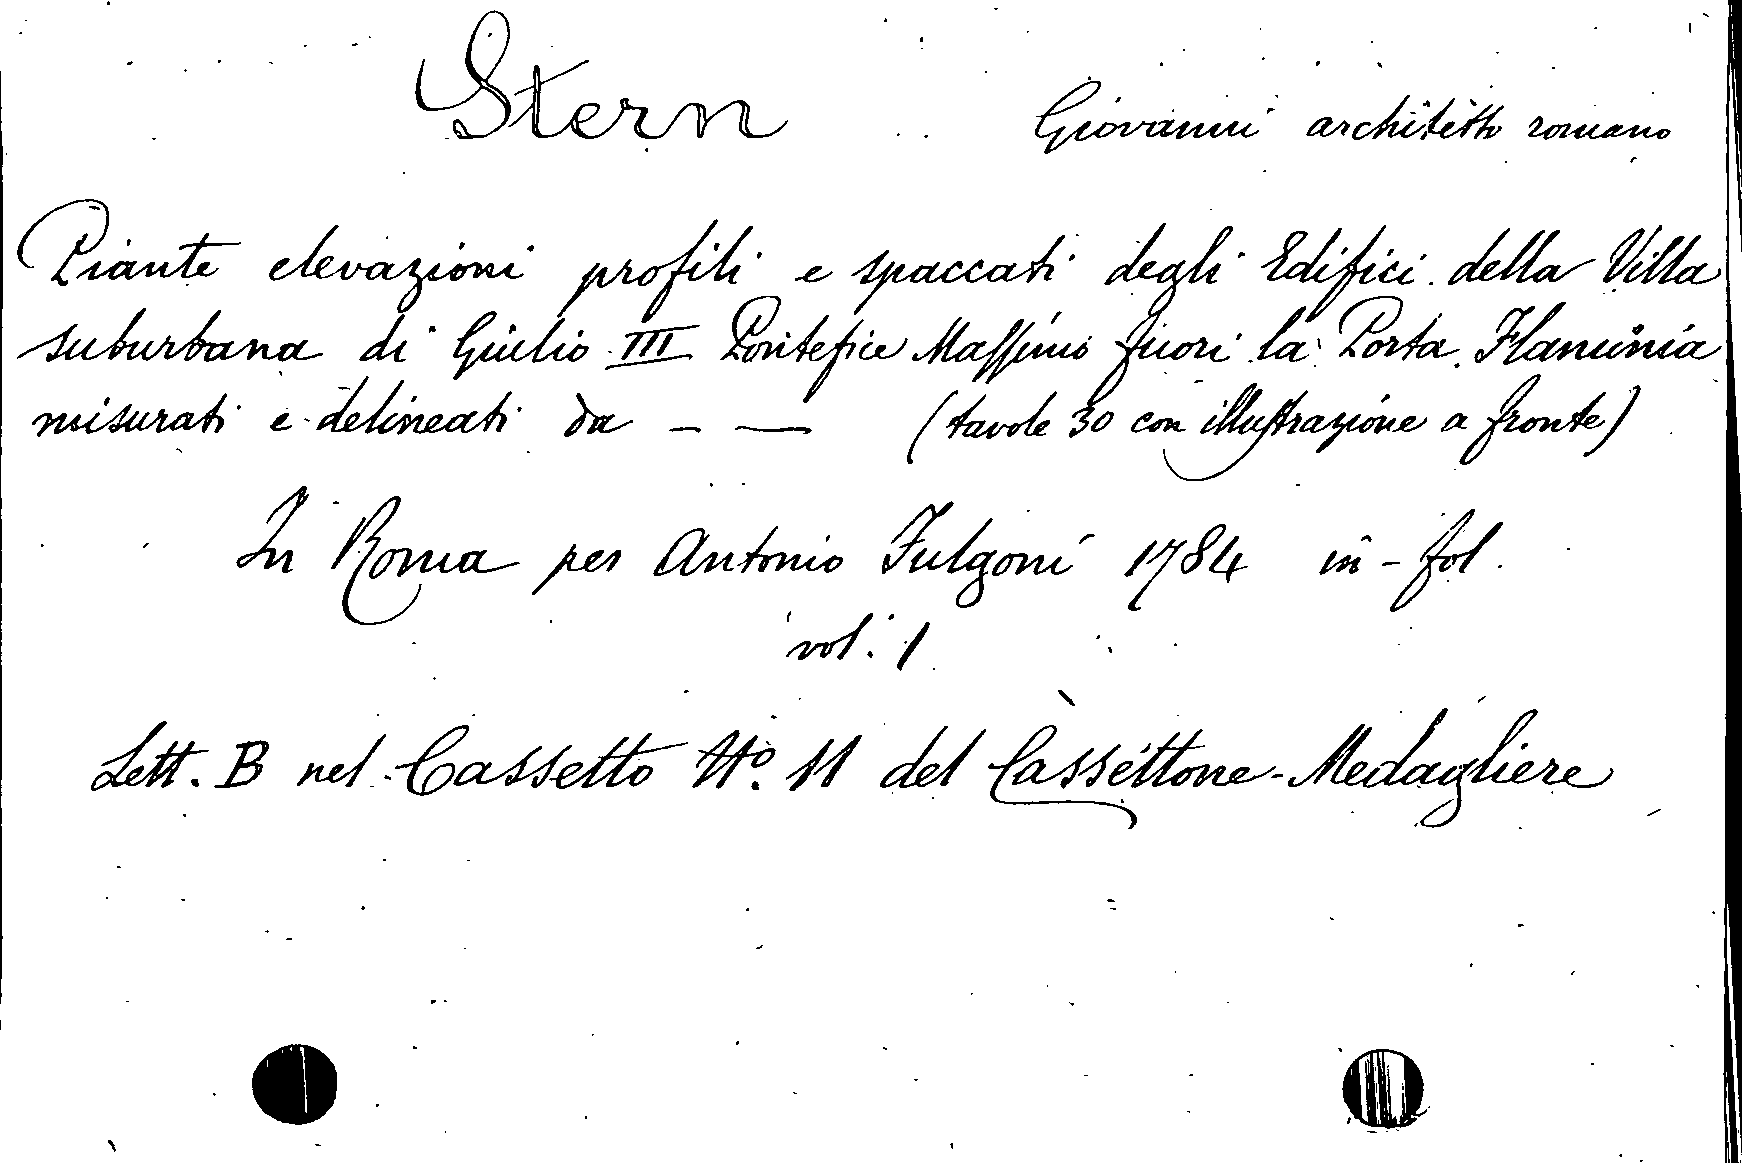 Stern Giovanni architetto romano
Piante elevazioni profili e spaccati degli Edifici della Villa
suburbana di Giulio III Pontefice Massimo fuori la Porta Flaminia
misurati e delineati da - — (tavole 30 con illustrazione a fronte)
In Roma per Antonio Fulgoni 1784 in-fol.
vol. 1
Lett. B nel Cassetto Nº. 11 del Cassettone-Medagliere